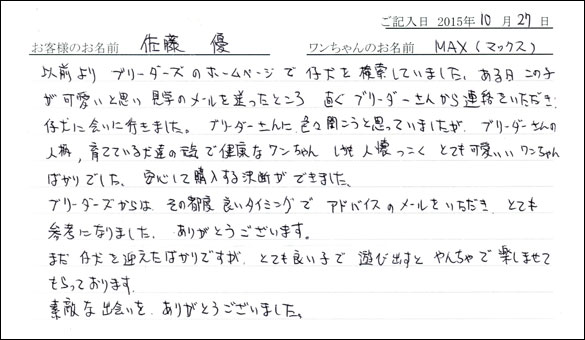 ご記入日 2015年10月27日
お客様のお名前 佐藤 優 ワンちゃんのお名前 MAX(マックス)
以前より ブリーダーズ のホームページ で 仔犬を 検索していました。ある日 この子
が 可愛いと思い 見学のメールを送ったところ 直ぐブリーダーさんから 連絡をいただき、
仔犬に会いに行きました。ブリーダーさんに 色々聞こうと思っていましたが、ブリーダーさんの
人柄、育てている犬達の で健康なワンちゃん しかも 人懐っこく とても可愛いい ワンちゃん
ばかりでした。 安心して購入する決断が できました。
ブリーダーズからは その都度 良いタイミングで アドバイスのメールをいただき とても
参考になりました。 ありがとうございます。
まだ 仔犬を迎えたばかりですが、とても良い子で 遊び出すと やんちゃで 楽しませて
もらっております。
素敵な出会いを、ありがとうございました。